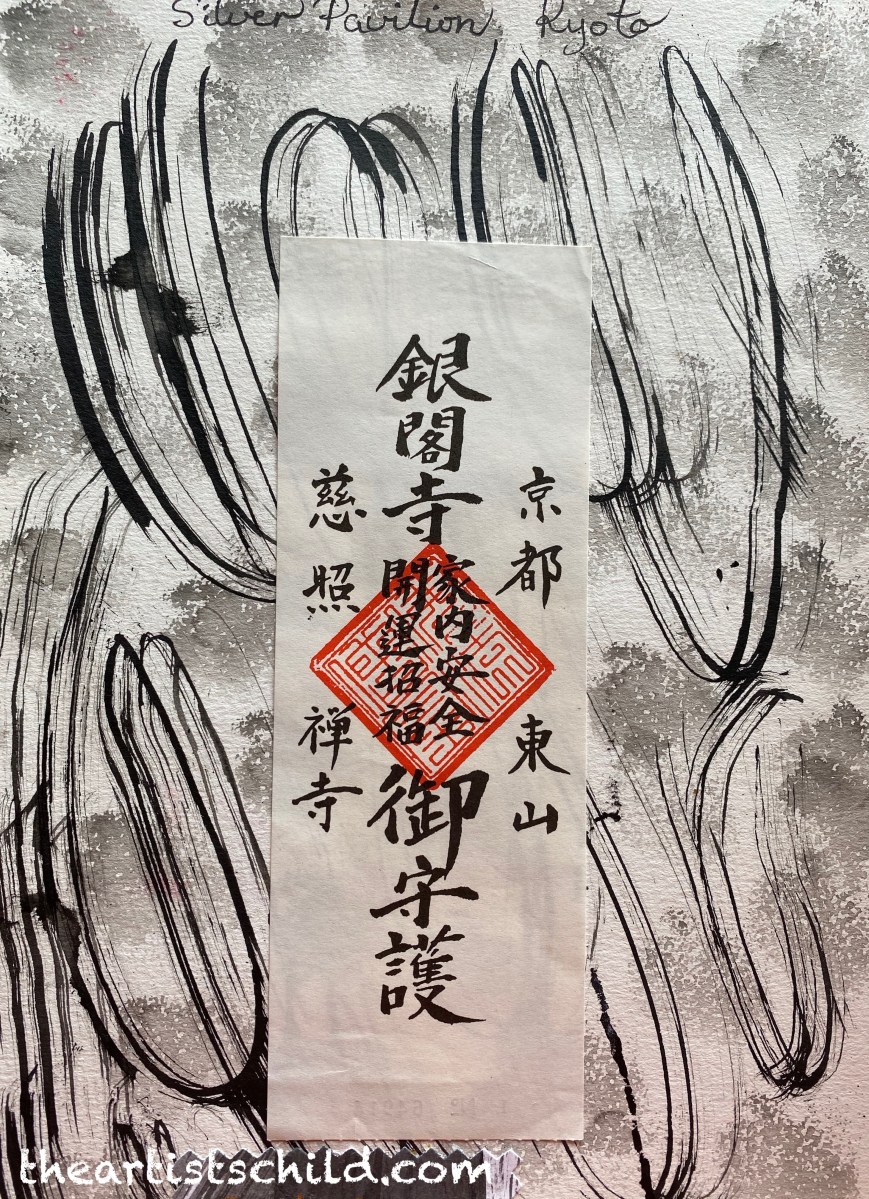 Silver Pavilion Kyoto
京都 東山
銀閣寺
家内安全
開運招福
御守護
慈照禅寺
theartistschild.com